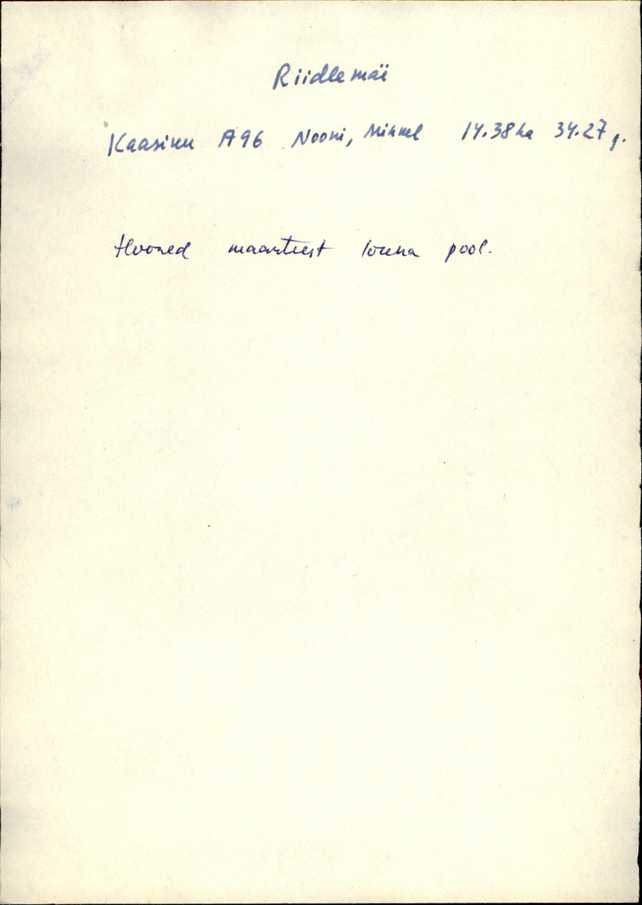 Riidlemäe
Kaasiku A96 Nooni, Mihkel 14.38 ha 34.27 r.
Hooned maanteest lõuna pool.